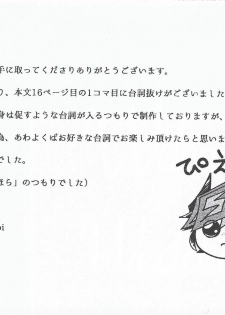 手に取ってくださりありがとうございます。
り、本文16ページ目の1コマ目に台詞抜けがございました
身は促すような台詞が入るつもりで制作しておりますが、
為、あわよくばお好きな台詞でお楽しみ頂けたらと思いま
でした。
ほら」のつもりでした）
oi
ぴえ